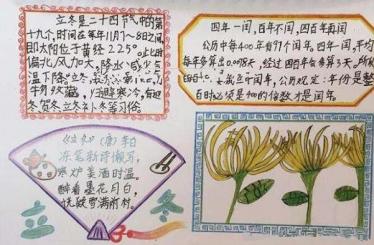 立冬是二十四节气中的第
十九个,时间在每年11月7-8日之间
即太阳位于黄经225°。
偏北,风加大,降水减少
温下降
藏,
四年一闰,百年不闰,四百年再闰
公历中每400年有97个闰年。四年一闰,平均
每年多算出0.0078天,经过四百年会多算3天,
公历规定:年份是整
百时必须是400的倍数才是闰年。
《立冬》(唐)李白
冻笔新诗懒写,
寒炉美酒时温,
醉看墨花月白,
恍疑雪满前村。
立冬